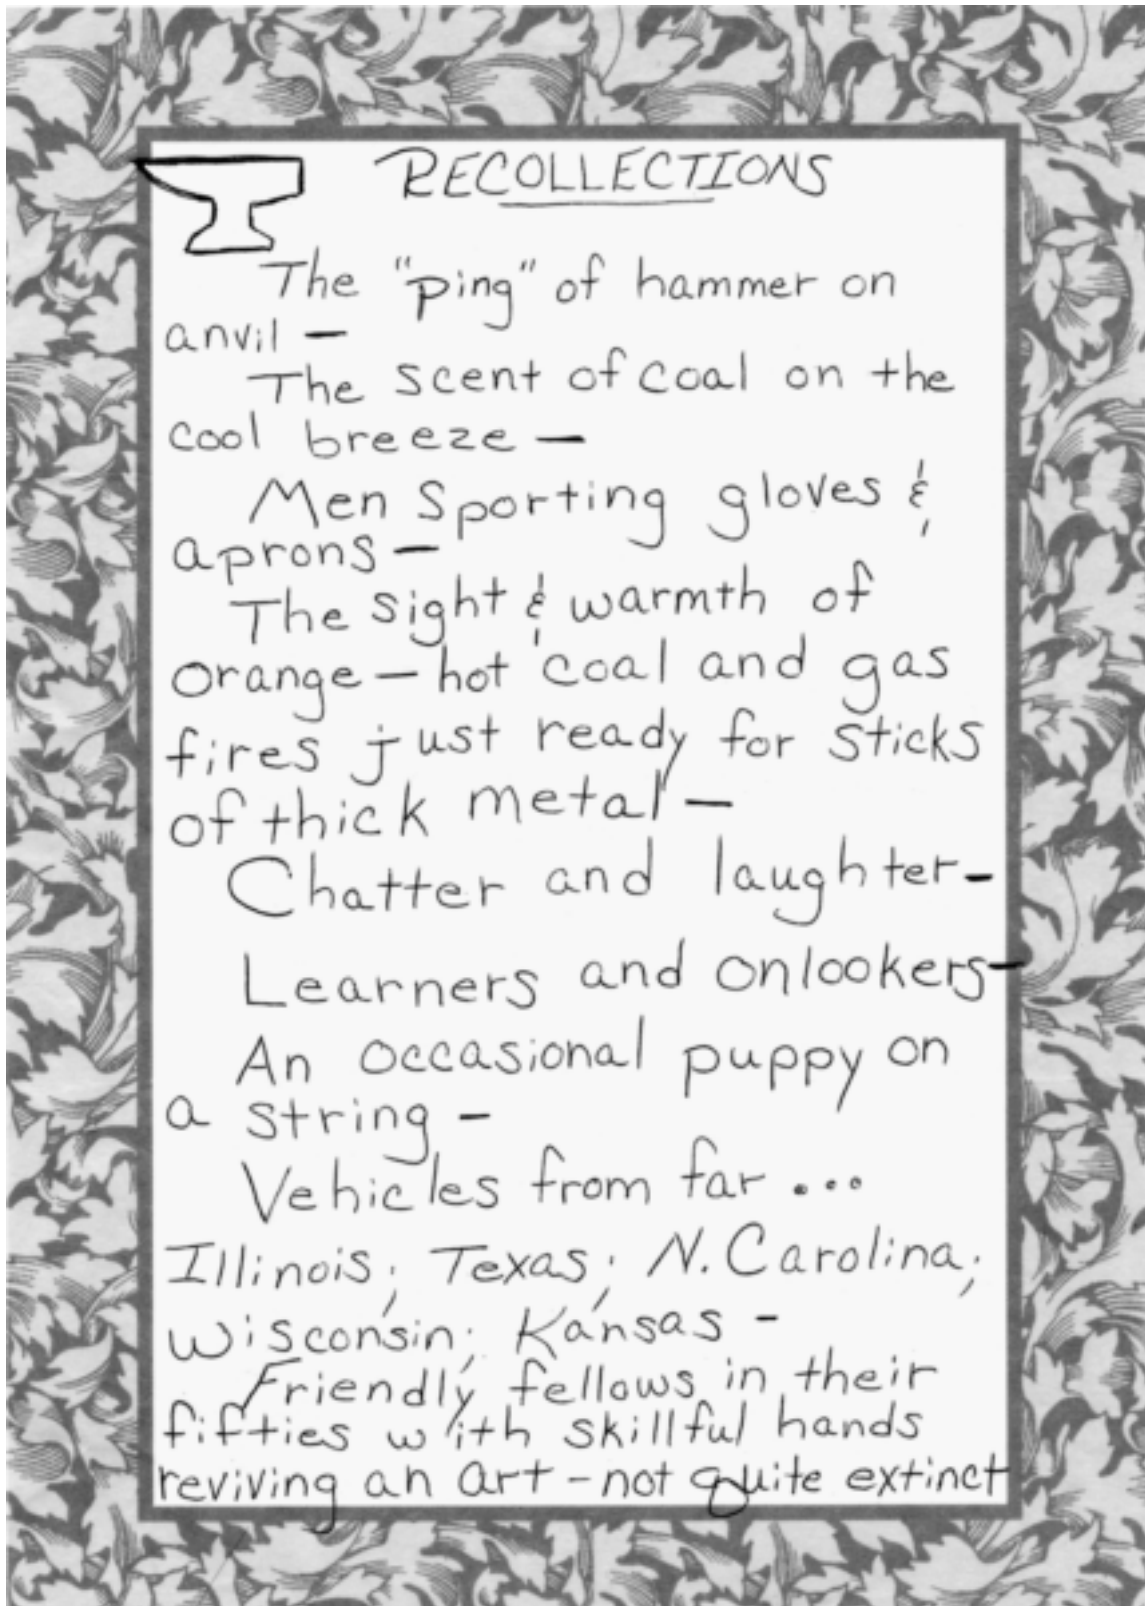 RECOLLECTIONS
The "ping" of hammer on
anvil —
The scent of coal on the
cool breeze —
Men Sporting gloves &
aprons —
The sight & warmth of
orange — hot coal and gas
fires just ready for sticks
of thick metal —
Chatter and laughter —
Learners and onlookers —
An occasional puppy on
a string —
Vehicles from far ...
Illinois; Texas; N. Carolina;
Wisconsin; Kansas -
Friendly fellows in their
fifties with skillful hands
reviving an art - not quite extinct